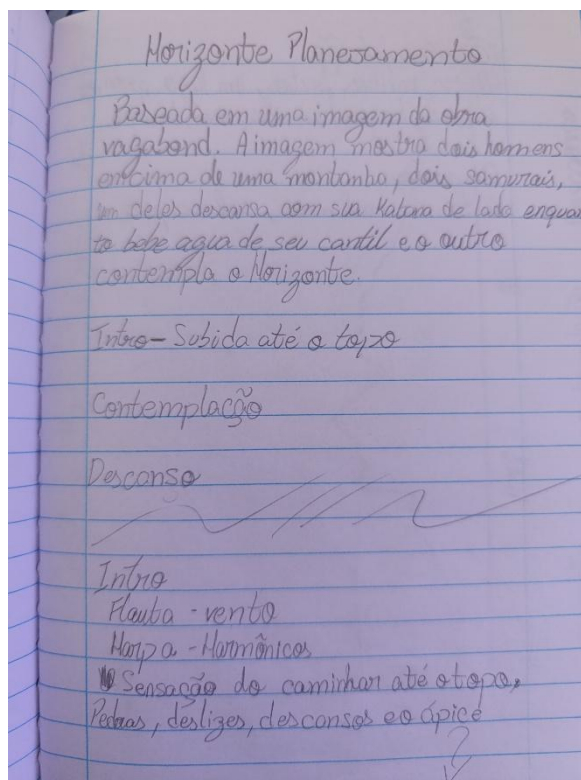 Horizonte Planejamento
Baseada em uma imagem da obra
vagabond. A imagem mostra dois homens
encima de uma montanha, dois samurais,
um deles descansa com sua Katana de lado enquan
to bebe agua de seu cantil e o outro
contempla o Horizonte.
Intro - Subida até o topo
Contemplação
Descanso
Intro
Flauta - vento
Harpa - Harmônicos
Sensação do caminhar até o topo,
Pedras, deslizes, descansos e o ápice